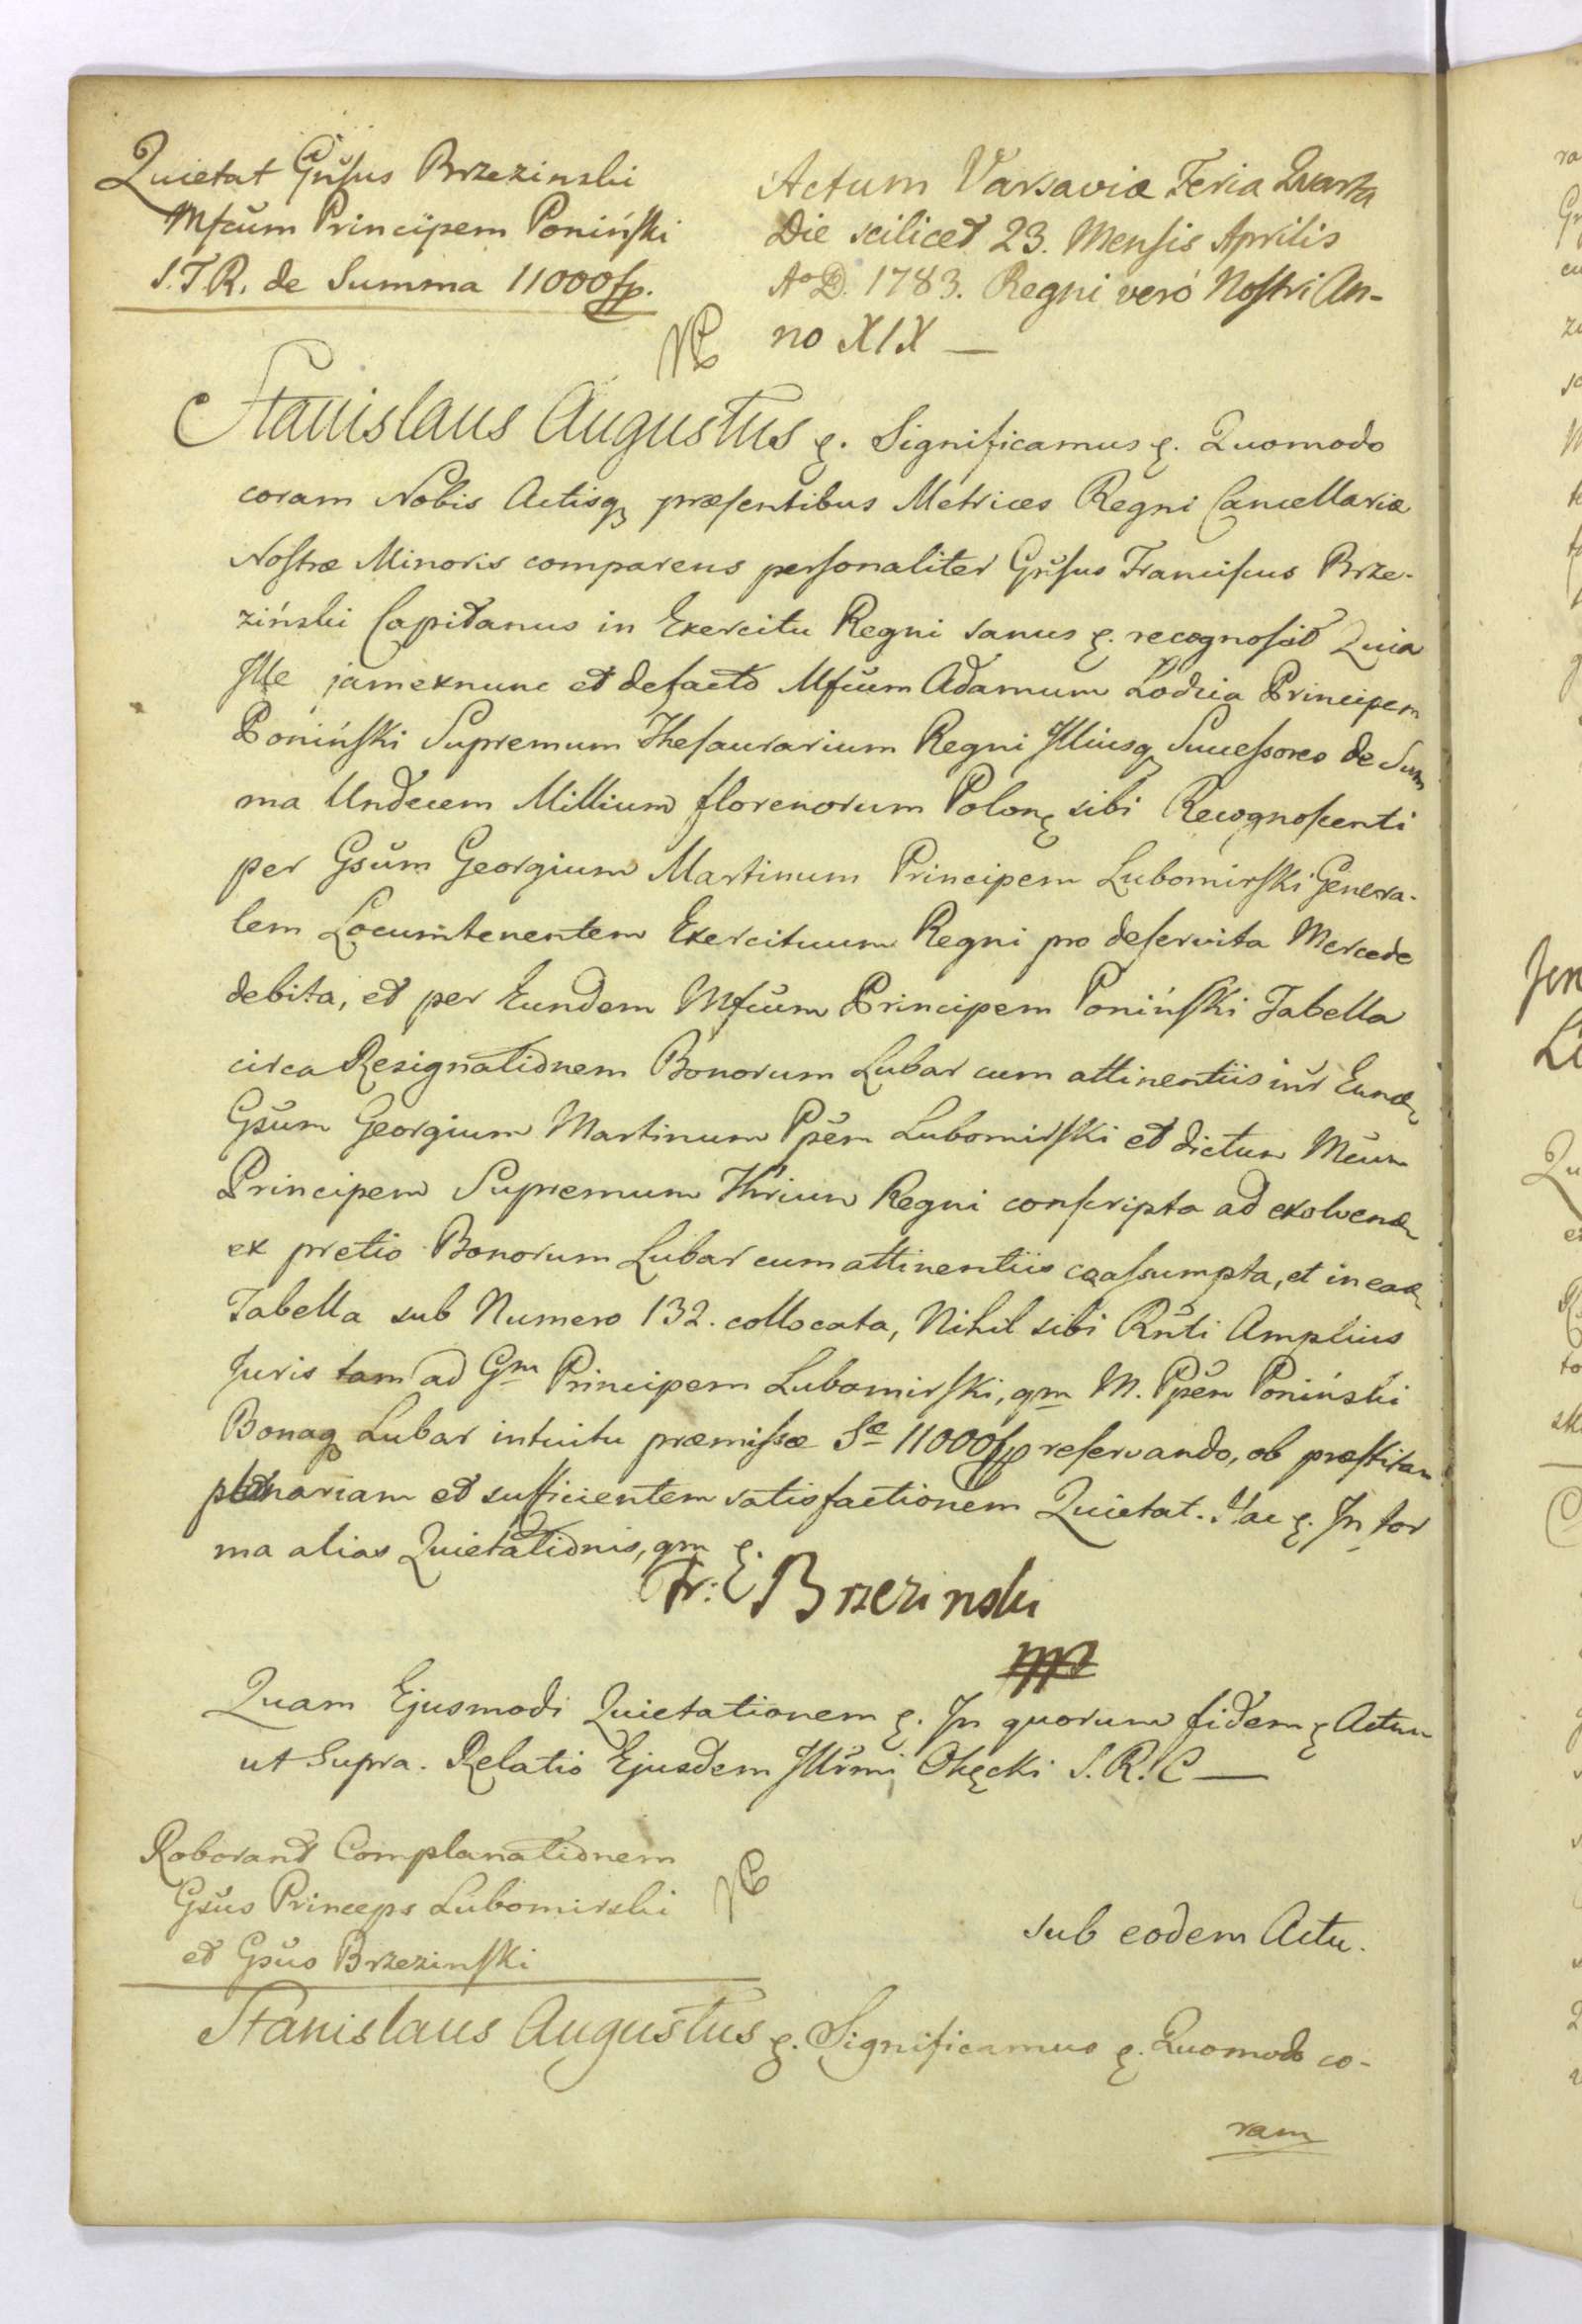 Quietat Gnsus Brzezinski
Mfcum Principem Poniński
S.T.R. de Summa 11000 fp.
Actum Varsaviæ Feria Quarta
Die scilicet 23. Mensis Aprilis
Aº D. 1783. Regni veró Nostri An-
no XIX —
Stanislaus Augustus ę. Significamus ę. Quomodo
coram Nobis Actisq præsentibus Metrices Regni Cancellariæ
Nostræ Minoris comparens personaliter Gnsus Franciscus Brze-
ziński Capitanus in Exercitu Regni sanus ę. recognoscit Quia
Ille jam exnunc et defacto Mfcum Adamum Łodzia Principem
Poniński Supremum Thesaurarium Regni Illiusq Successores de Sum
ma Undecem Millium florenorum Polonę sibi Recognoscenti
per Gsum Georgium Martinum Principem Lubomirski Genera-
lem Locumtenentem Exercituum Regni pro deservita Mercede
debita, et per Eundem Mfcum Principem Poniński Tabella
circa Resignationem Bonorum Lubar cum attinentiis intr Eund
Gsum Georgium Martinum Ppem Lubomirski et dictum Mcum
Principem Supremum Thrium Regni conscripta ad exolvend
ex pretio Bonorum Lubar cum attinentiis coassumpta, et in ead
Tabella sub Numero 132. collocata, Nihil sibi Rnti Amplius
Juris tam ad Gm Principem Lubomirski, qm M. Ppem Poniński
Bonaq Lubar intuitu præmissæ Sæ 11000 fp reservando, ob præstitam
plenariam et sufficientem satisfactionem Quietat. Hac ę. In for
ma alias Quietationis, qm ę.
Fr: Brzezinski
mp
Quam Ejusmodi Quietationem ę. In quorum fidem ę Actum
ut Supra. Relatio Ejusdem Illrmi Okęcki S.R.C —
Roborant Complanationem
Gsus Princeps Lubomirski
et Gsus Brzezinski
sub eodem Actu.
Stanislaus Augustus ę. Significamus ę. Quomodo co-
ram